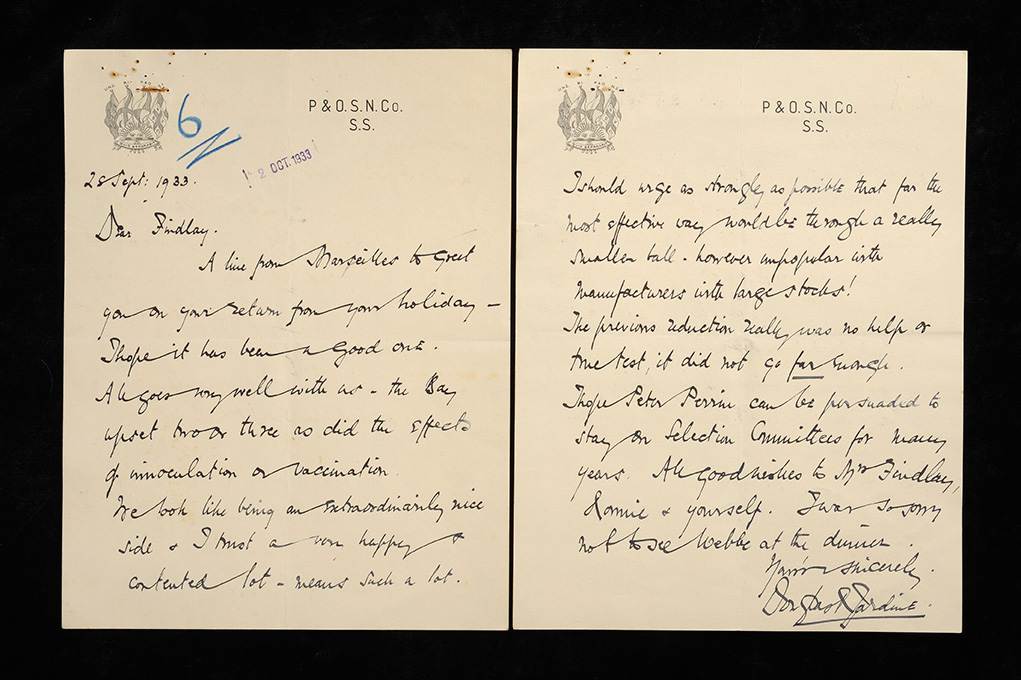 P & O. S. N. Co.
S.S.
6
2 OCT. 1933
28 Sept: 1933.
Dear Findlay.
A line from Marseilles to greet
you on your return from your holiday –
I hope it has been a good one.
All goes very well with us – the Bay
upset two or three as did the effects
of innoculation or vaccination.
We look like being an extraordinarily nice
side & I trust a very happy &
contented lot – means such a lot.
P & O. S. N. Co.
S.S.
I should urge as strongly as possible that far the
most effective way would be through a really
smaller ball – however unpopular with
manufacturers with large stocks!
The previous reduction really was no help or
true test, it did not go far enough.
I hope Peter Perrin can be persuaded to
stay on Selection Committees for many
years. All good wishes to Mrs Findlay,
& yourself. I was so sorry
not to see Webbe at the dinner.
Yours sincerely.
Douglas R Jardine.